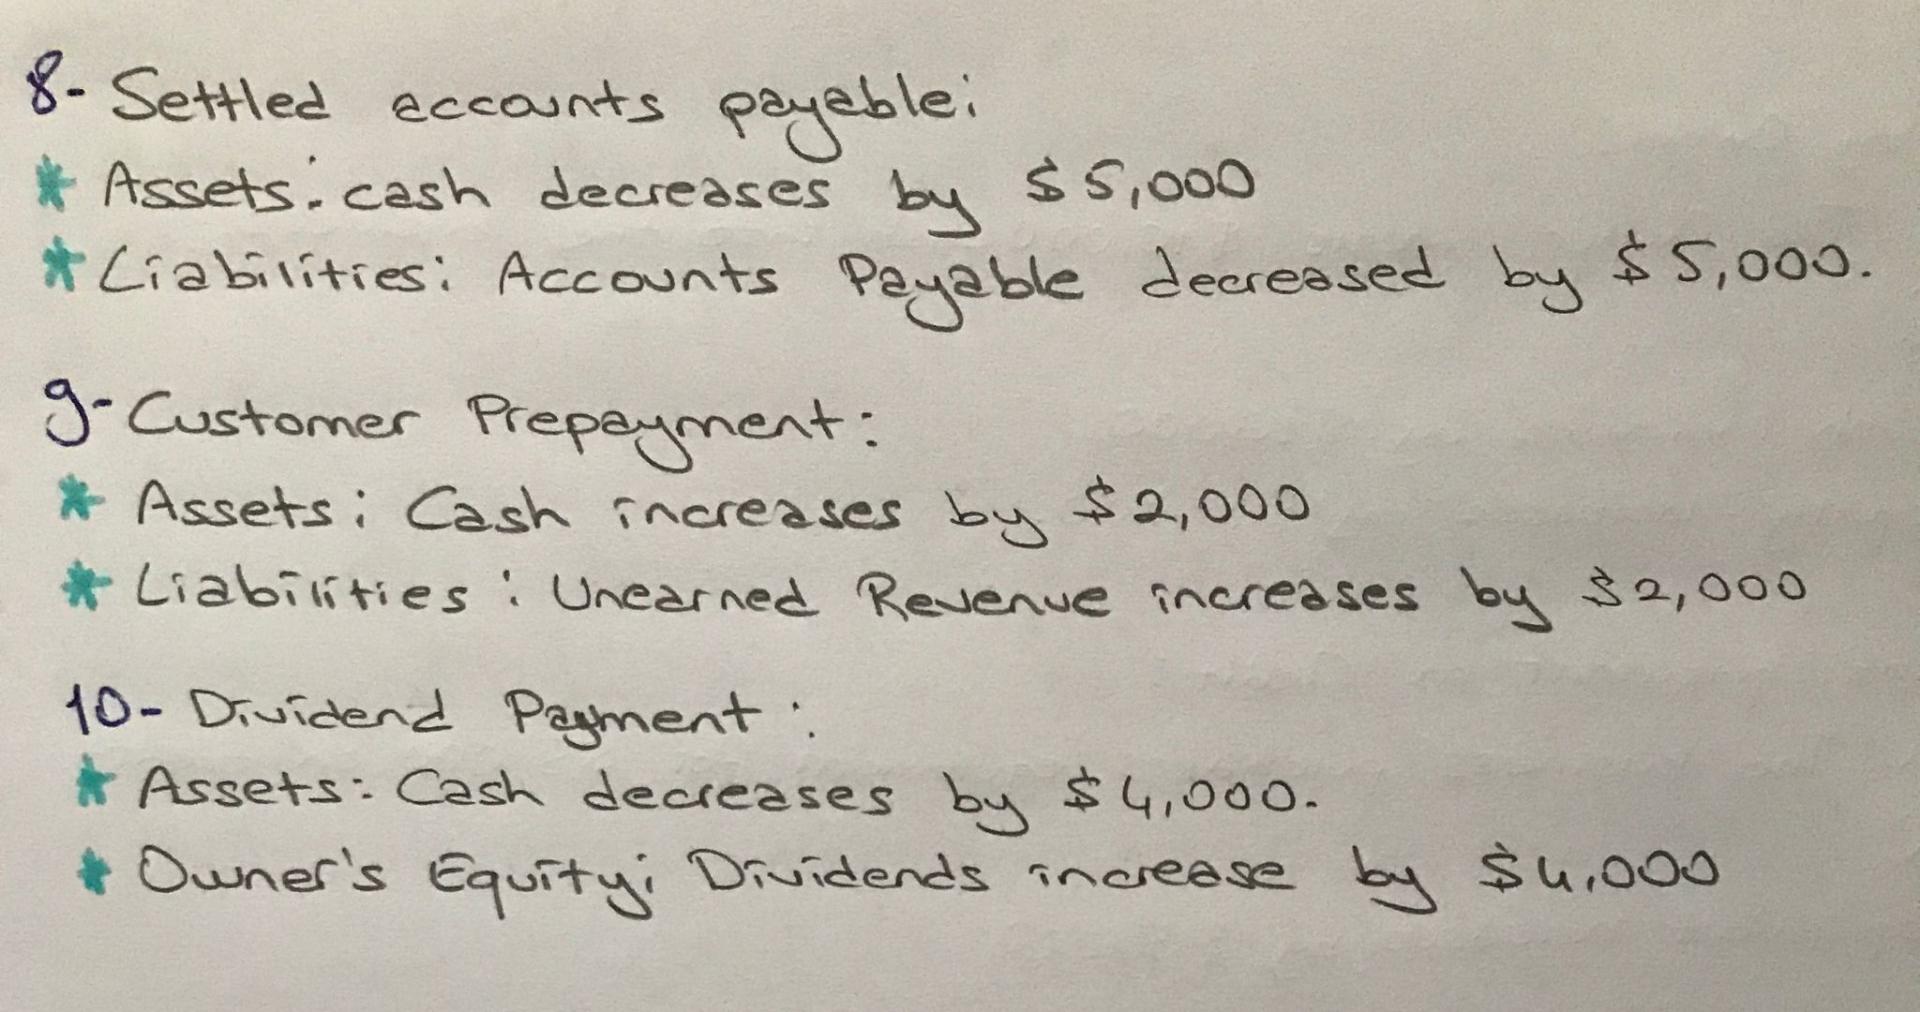 8- Settled accounts payable:
* Assets: cash decreases by $5,000
* Liabilities: Accounts Payable decreased by $5,000.
9- Customer Prepayment:
* Assets: Cash increases by $2,000
* Liabilities: Unearned Revenue increases by $2,000
10- Dividend Payment:
* Assets: Cash decreases by $4,000.
* Owner's Equity: Dividends increase by $4,000